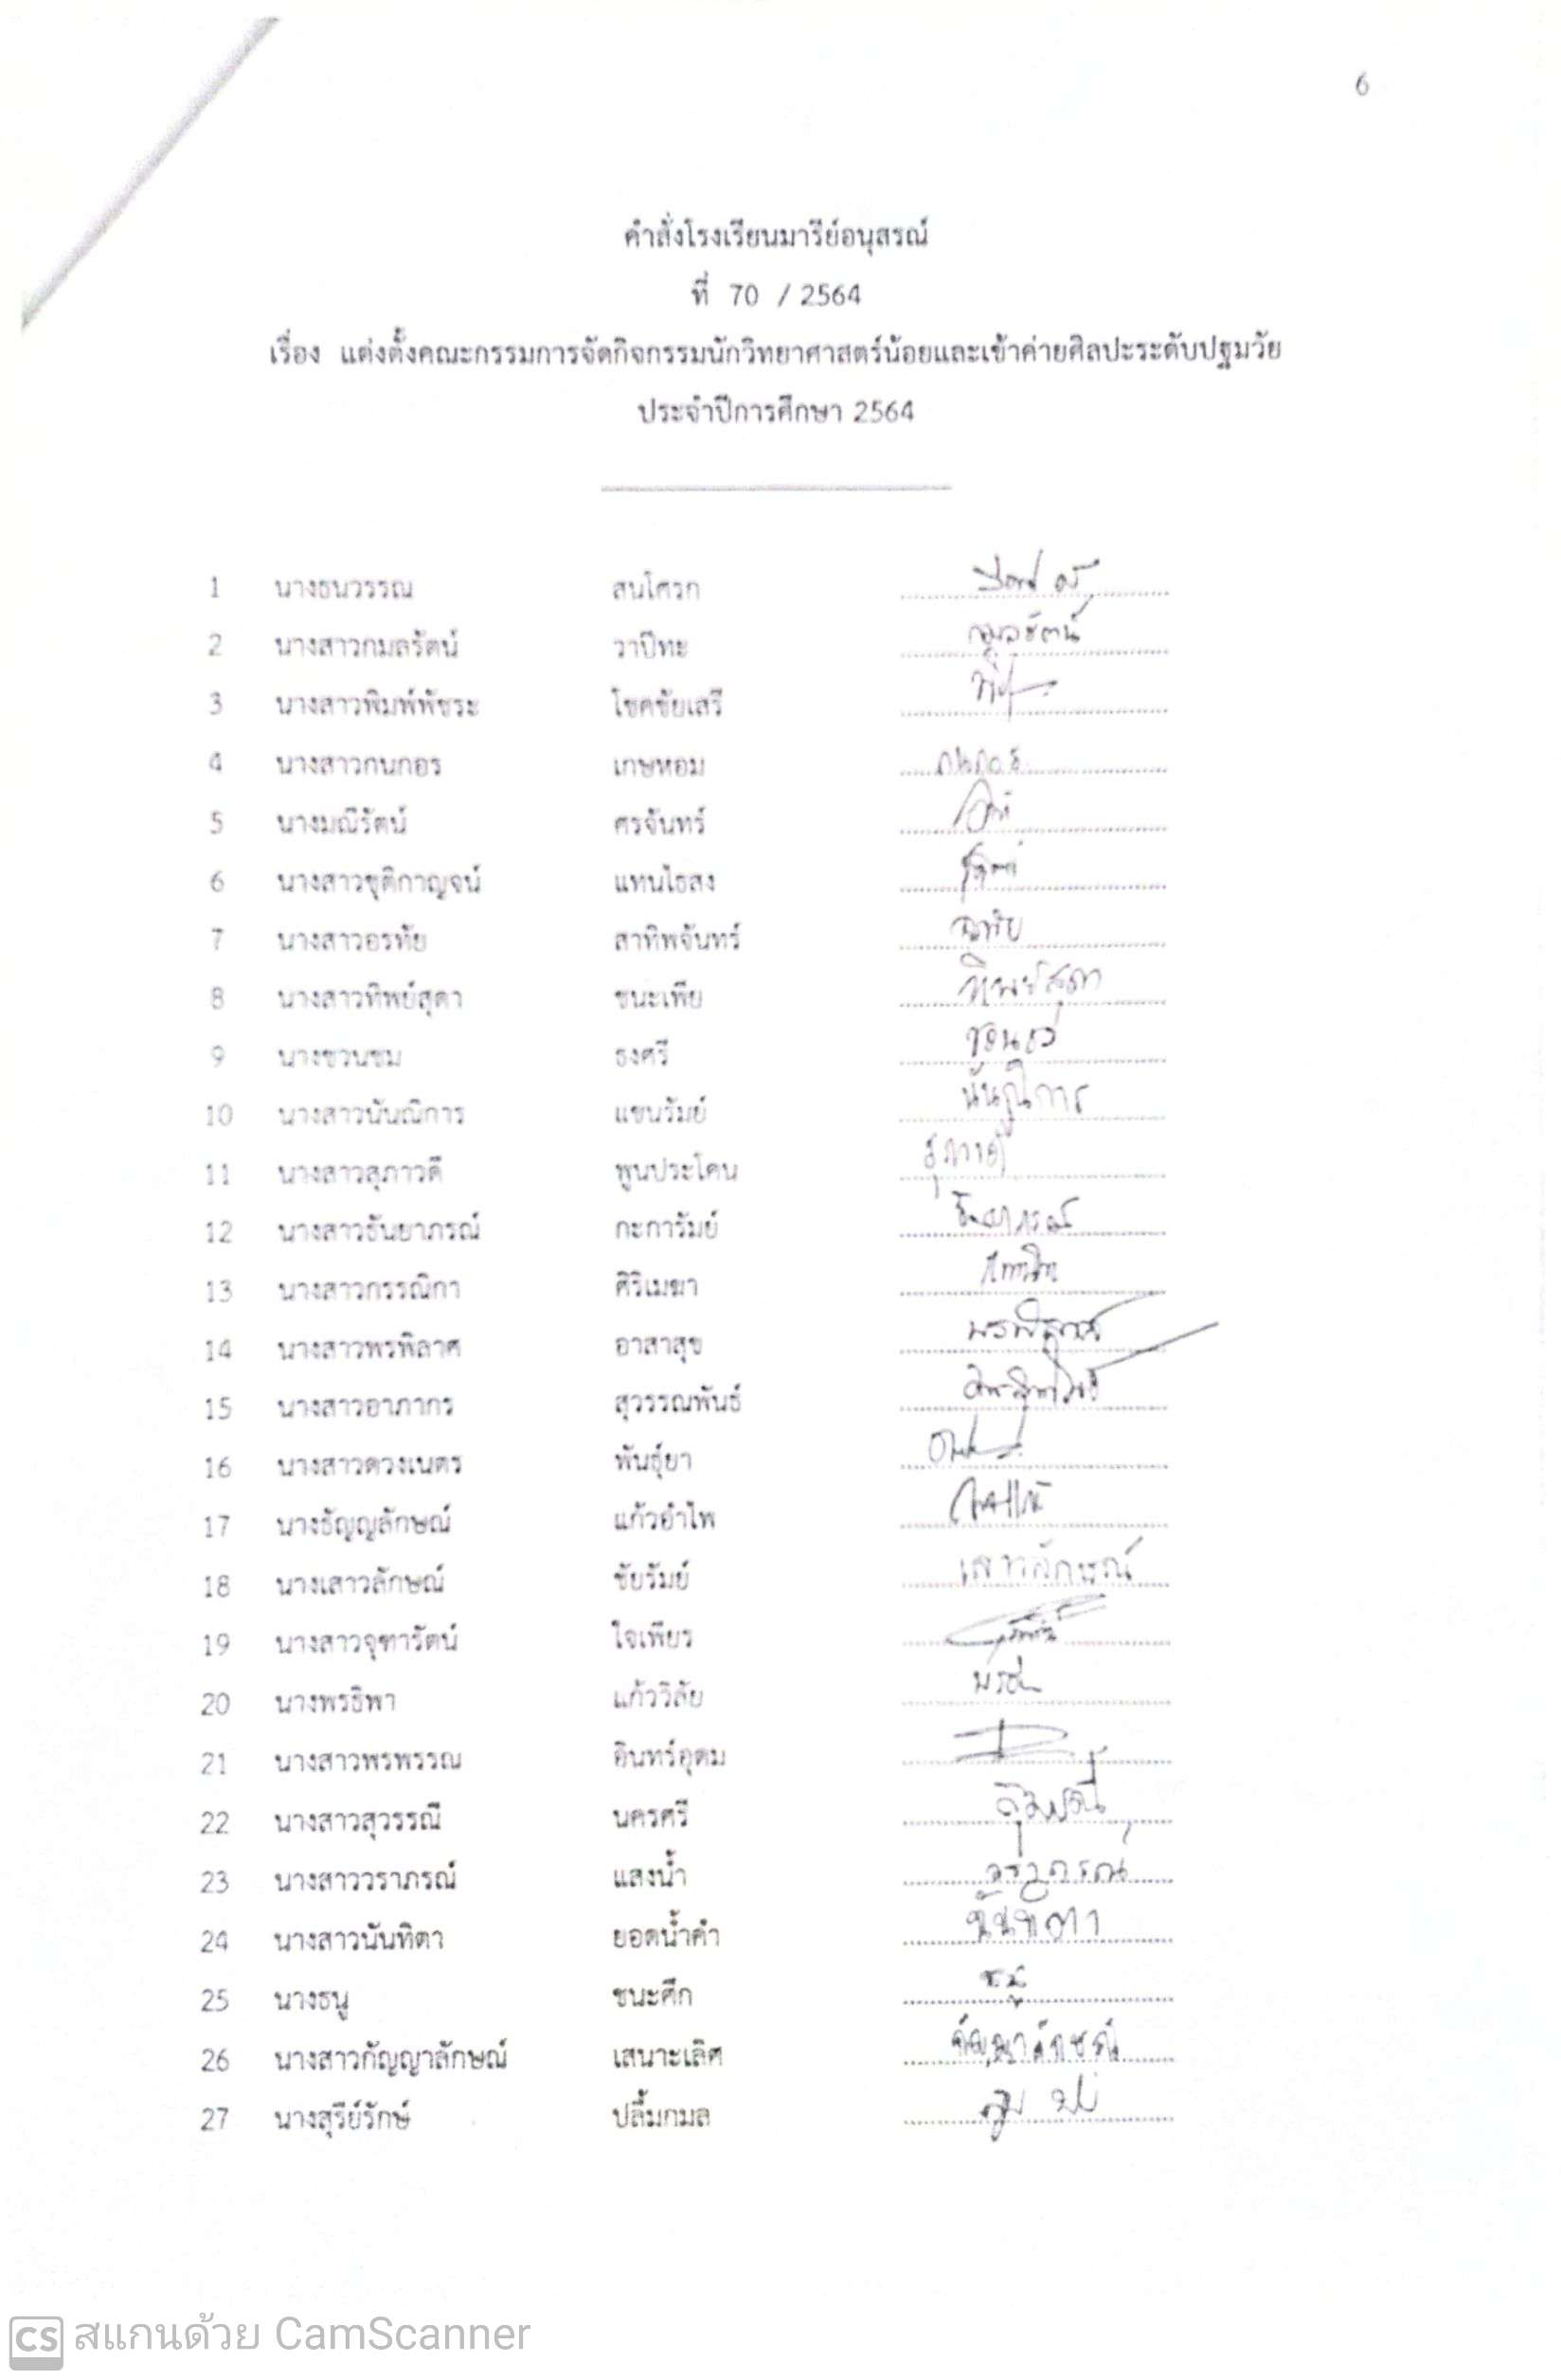 6
คำสั่งโรงเรียนมารีย์อนุสรณ์
ที่ 70 / 2564
เรื่อง แต่งตั้งคณะกรรมการจัดกิจกรรมนักวิทยาศาสตร์น้อยและเข้าค่ายศิลปะระดับปฐมวัย
ประจำปีการศึกษา 2564
1 นางธนวรรณ สนโศรก
2 นางสาวกมลรัตน์ วาปีทะ กมลรัตน์
3 นางสาวพิมพ์พัชระ โชคชัยเสรี
4 นางสาวกนกอร เกษหอม กนกอร
5 นางมณีรัตน์ ศรจันทร์
6 นางสาวชุติกาญจน์ แทนไธสง
7 นางสาวอรทัย สาทิพจันทร์ อรทัย
8 นางสาวทิพย์สุดา ชนะเพีย ทิพย์สุดา
9 นางชวนชม ธงศรี
10 นางสาวนันณิการ แขนรัมย์ นันณิการ
11 นางสาวสุภาวดี พูนประโคน สุภาวดี
12 นางสาวธันยาภรณ์ กะการัมย์ ธันยาภรณ์
13 นางสาวกรรณิกา ศิริเมฆา
14 นางสาวพรพิลาศ อาสาสุข พรพิลาศ
15 นางสาวอาภากร สุวรรณพันธ์
16 นางสาวดวงเนตร พันธุ์ยา
17 นางธัญญลักษณ์ แก้วอำไพ
18 นางเสาวลักษณ์ ชัยรัมย์ เสาวลักษณ์
19 นางสาวจุฑารัตน์ ใจเพียร
20 นางพรธิพา แก้ววิลัย
21 นางสาวพรพรรณ อินทร์อุดม
22 นางสาวสุวรรณี นครศรี สุวรรณี
23 นางสาววราภรณ์ แสงน้ำ วราภรณ์
24 นางสาวนันทิตา ยอดน้ำคำ นันทิตา
25 นางธนู ชนะศึก ธนู
26 นางสาวกัญญาลักษณ์ เสนาะเลิศ กัญญาลักษณ์
27 นางสุรีย์รักษ์ ปลื้มกมล
CS สแกนด้วย CamScanner